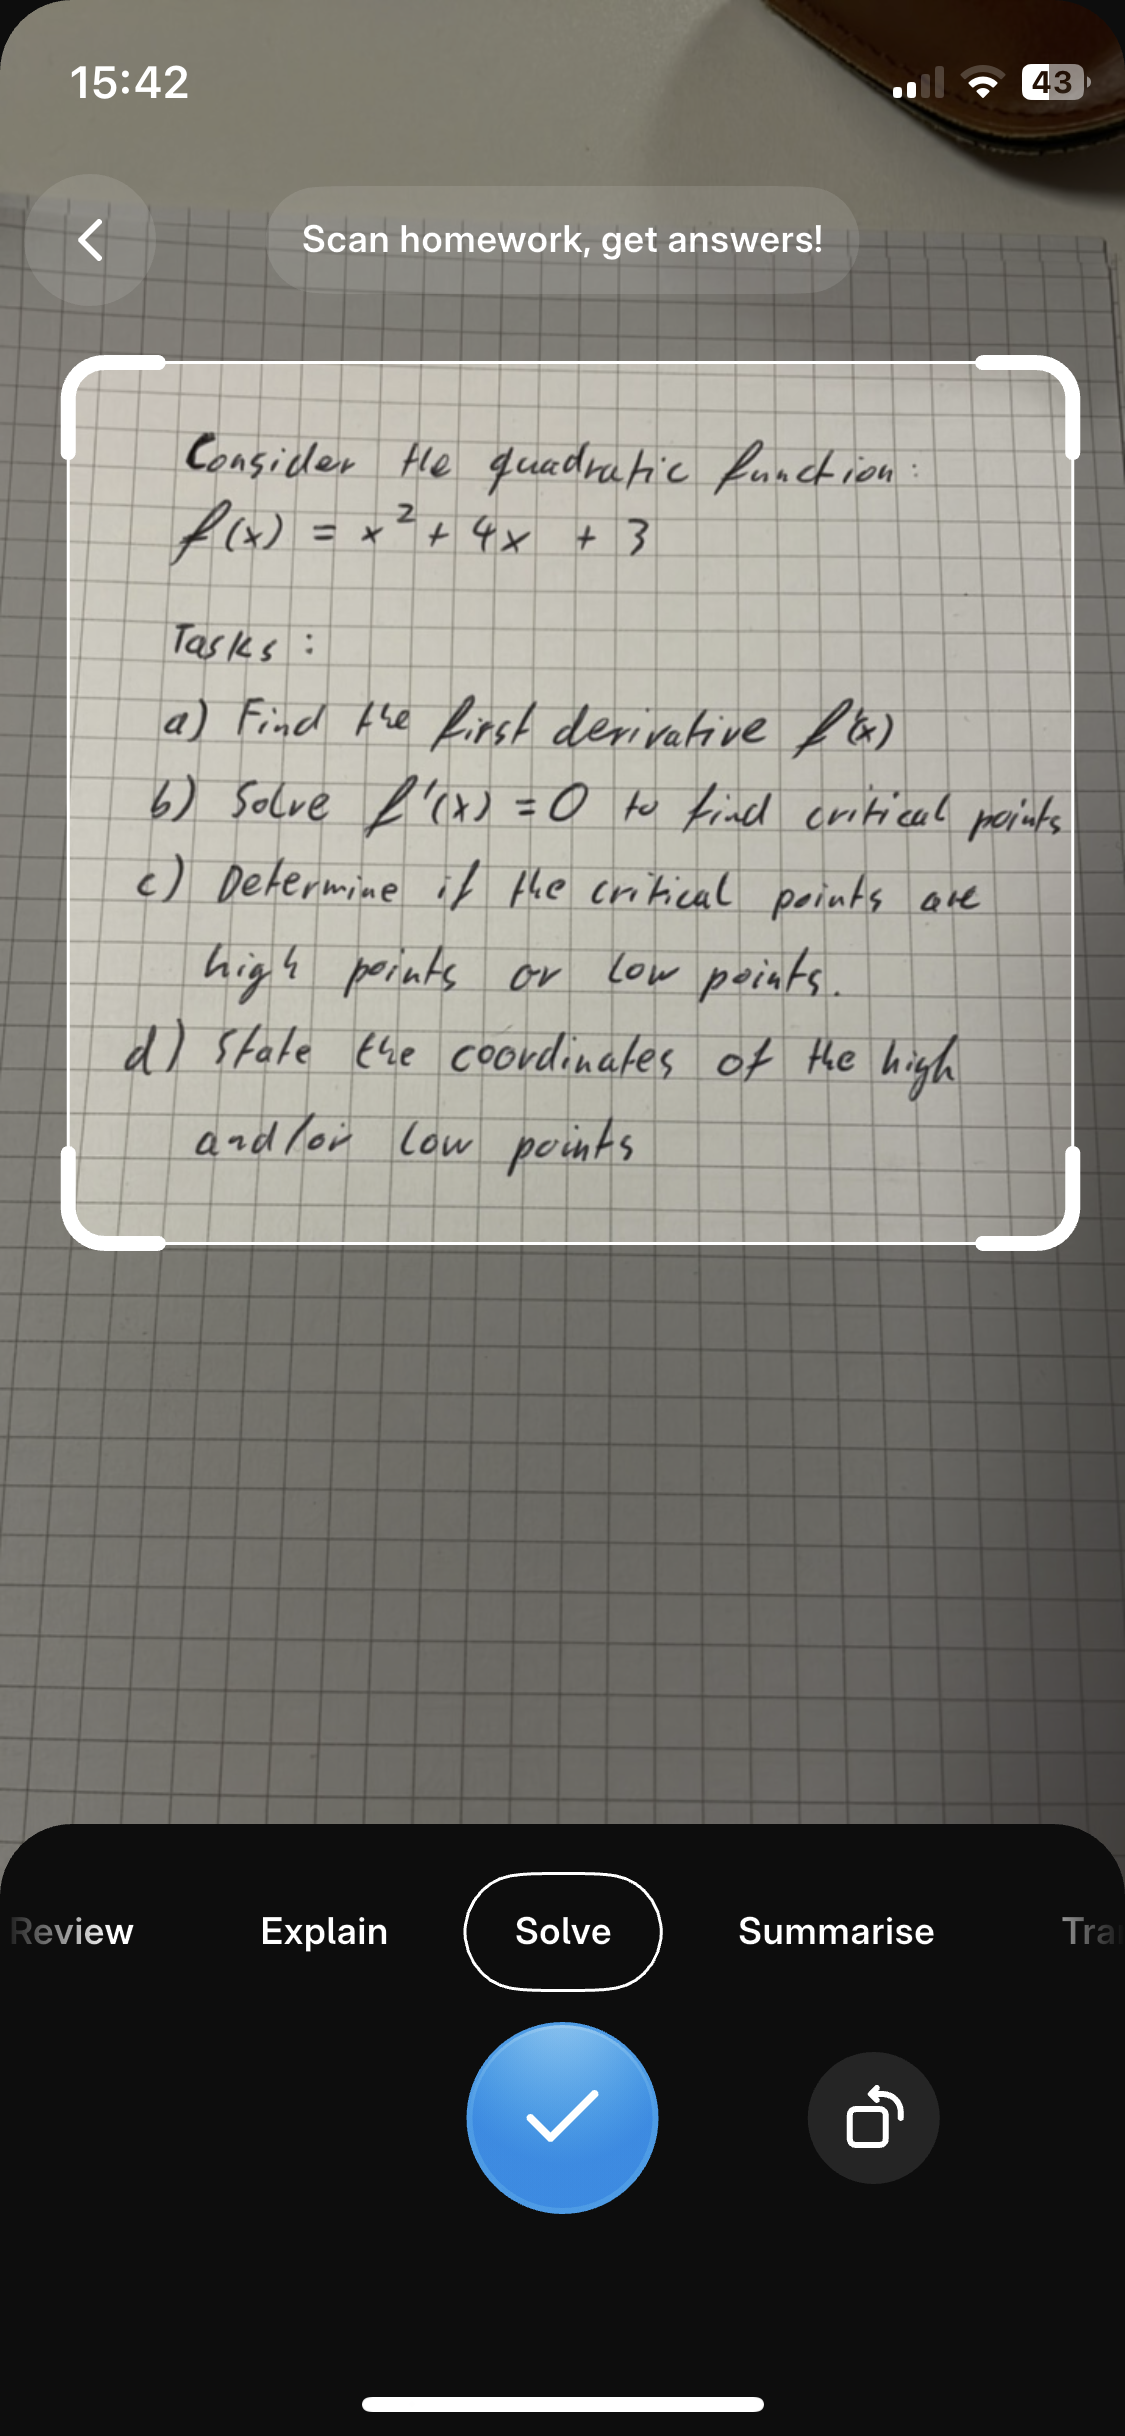 15:42
43
Scan homework, get answers!
Consider the quadratic function:
f(x) = x² + 4x + 3
Tasks:
a) Find the first derivative f'(x)
b) Solve f'(x) = 0 to find critical points
c) Determine if the critical points are
high points or low points.
d) State the coordinates of the high
and/or low points
Review Explain Solve Summarise Tra